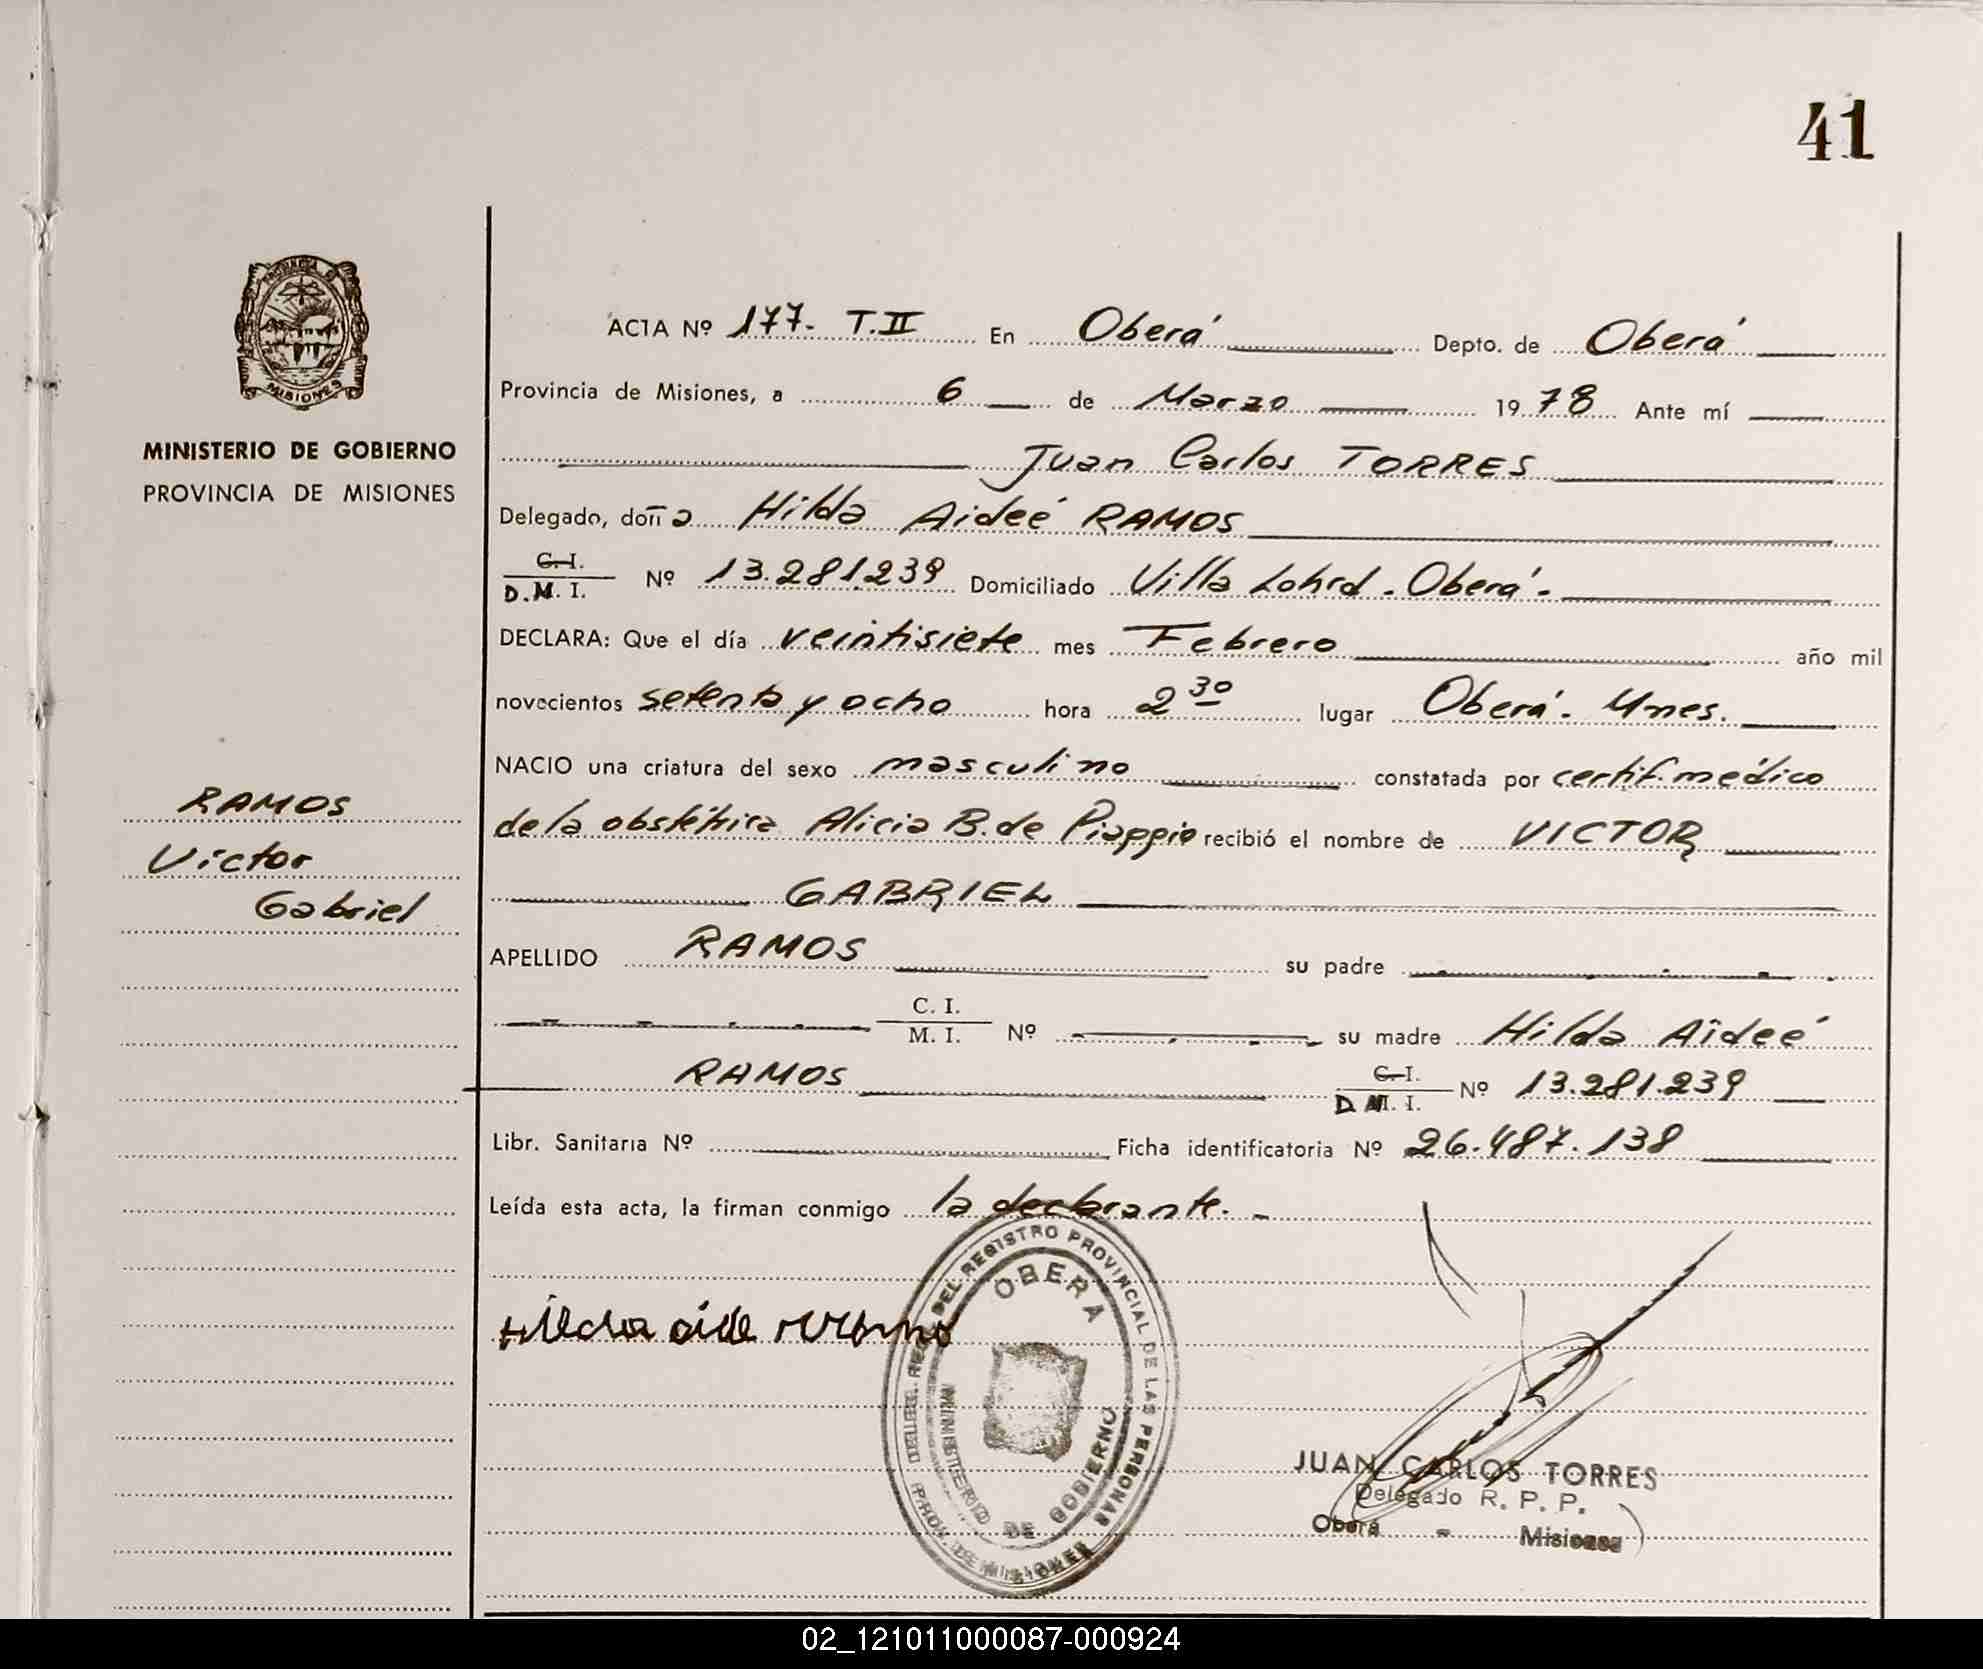 41
MINISTERIO DE GOBIERNO
PROVINCIA DE MISIONES
RAMOS
Victor
Gabriel
ACTA Nº 177. T.II En Oberá Depto. de Oberá
Provincia de Misiones, a 6 de Marzo 1978 Ante mí
Juan Carlos TORRES
Delegado, doña Hilda Aideé RAMOS
C.I. / D.M.I. Nº 13.281.239 Domiciliado Villa Lohrd - Oberá.-
DECLARA: Que el día veintisiete mes Febrero año mil
novecientos setenta y ocho hora 2 30 lugar Oberá. Mnes.
NACIO una criatura del sexo masculino constatada por certif. médico
de la obstétrica Alicia B. de Piaggio recibió el nombre de VICTOR
GABRIEL
APELLIDO RAMOS su padre
C. I. / M. I. Nº su madre Hilda Aideé
RAMOS C.I. / D.M.I. Nº 13.281.239
Libr. Sanitaria Nº Ficha identificatoria Nº 26.487.138
Leída esta acta, la firman conmigo la declarante.-
DEL REGISTRO PROVINCIAL DE LAS PERSONAS
OBERA
MINISTERIO DE GOBIERNO
JUAN CARLOS TORRES
Delegado R. P. P.
Oberá - Misiones
02_121011000087-000924